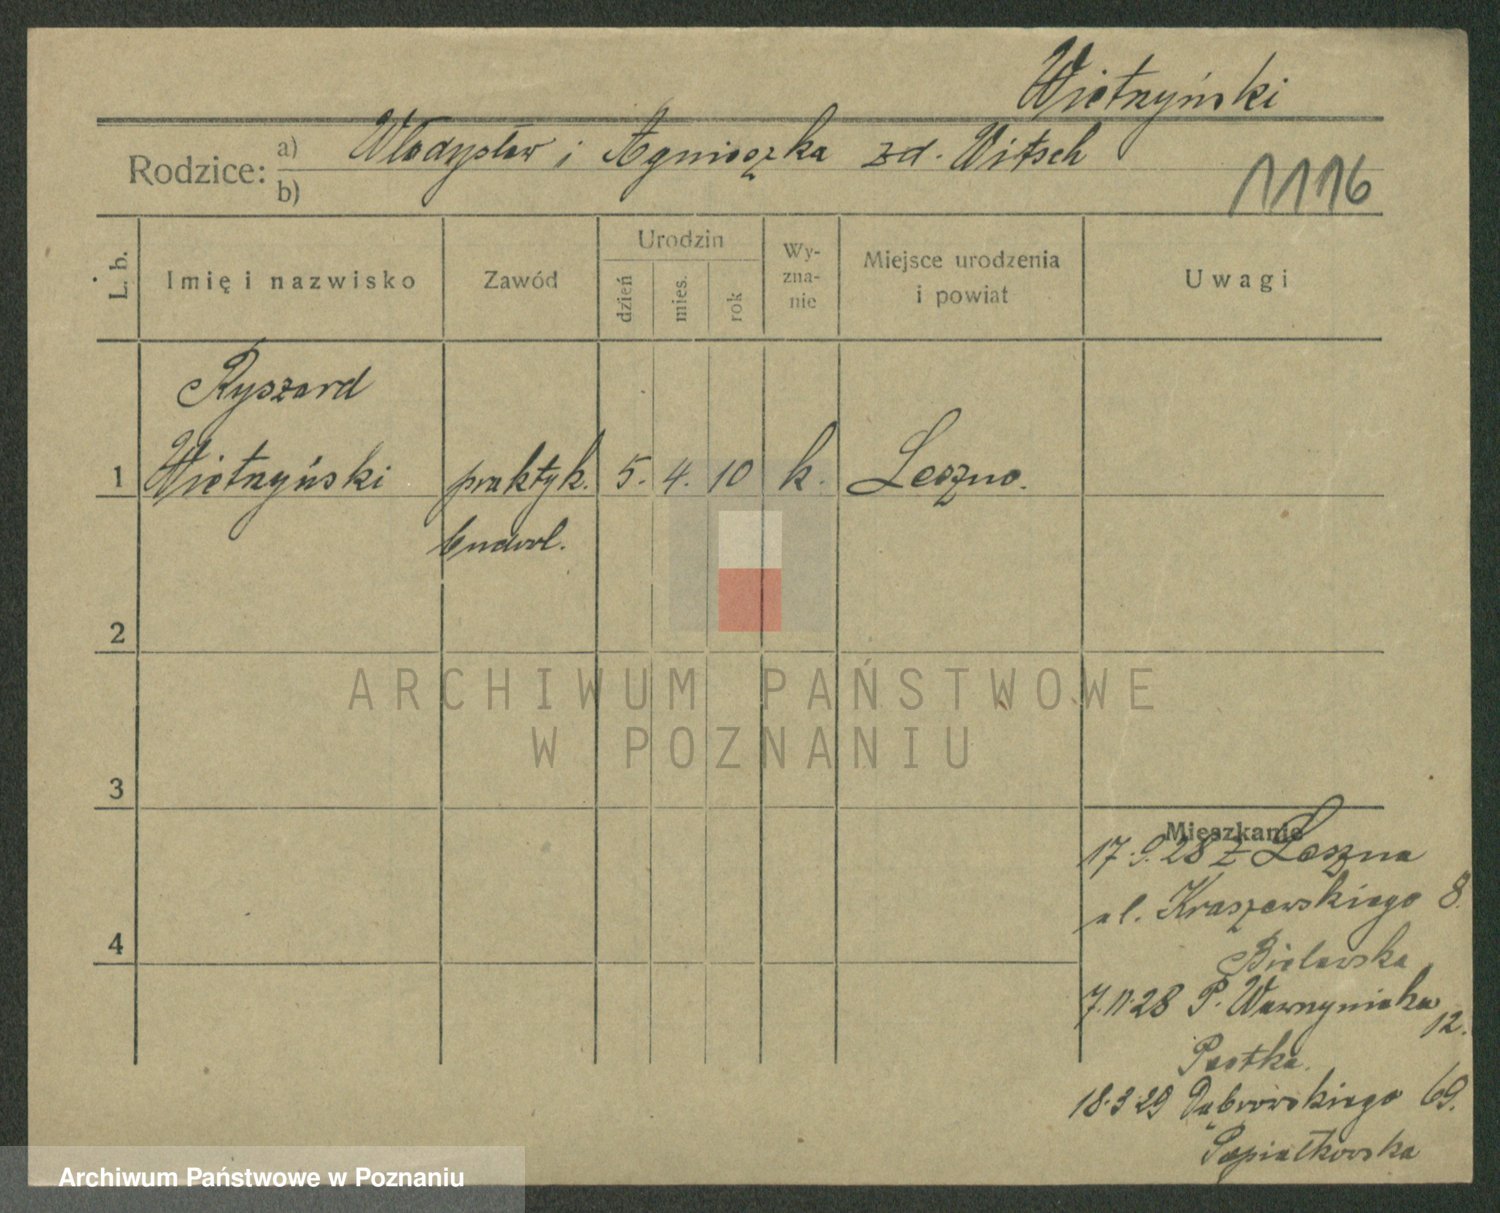 Wietrzyński
Rodzice:
a) Władysław i Agnieszka zd. Witsch
b)
1116
L. b.
Imię i nazwisko
Zawód
Urodzin
dzień
mies.
rok
Wy-
zna-
nie
Miejsce urodzenia
i powiat
Uwagi
Ryszard
1 Wietrzyński praktyk. 5. 4. 10 k. Leszno.
budowl.
2
3
4
Mieszkanie
17.9.28 z Leszna
ul. Kraszewskiego 8.
Bielawska
7.11.28 P. Wawrzyniaka
12.
18.3.29 Dąbrowskiego 69.
ARCHIWUM PAŃSTWOWE
W POZNANIU
Archiwum Państwowe w Poznaniu